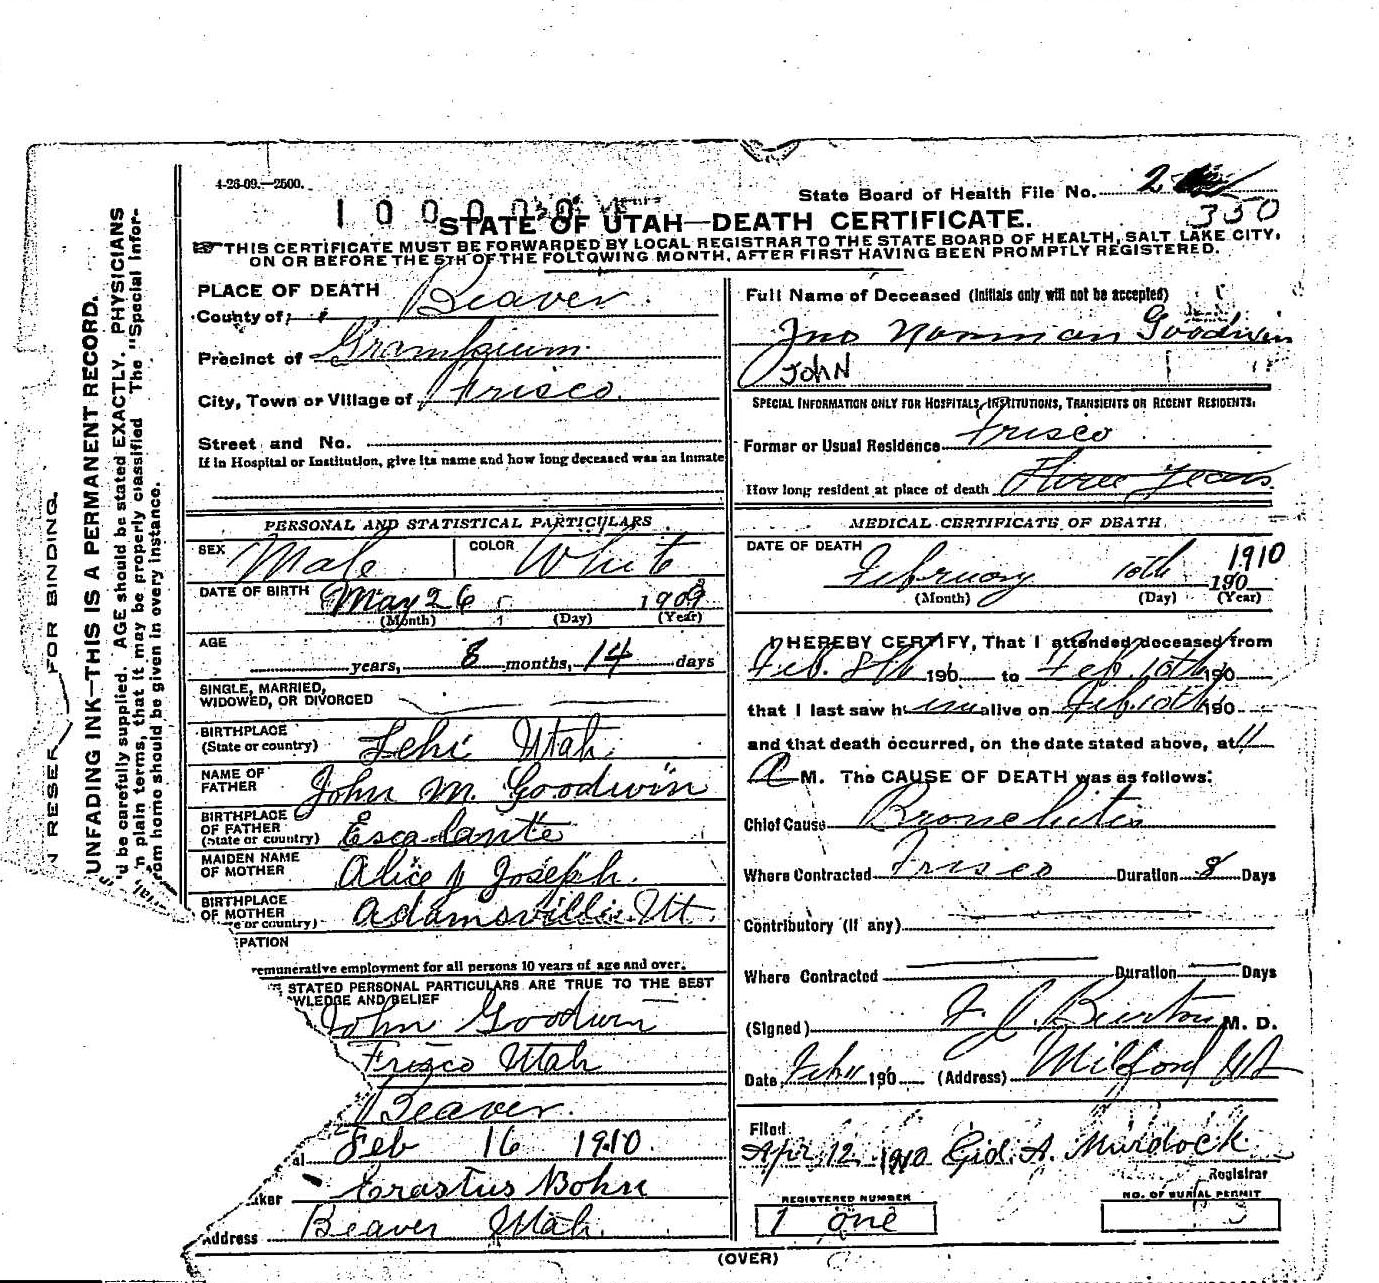 4-26-09.—2500.
State Board of Health File No. 2
350
STATE OF UTAH—DEATH CERTIFICATE.
THIS CERTIFICATE MUST BE FORWARDED BY LOCAL REGISTRAR TO THE STATE BOARD OF HEALTH, SALT LAKE CITY,
ON OR BEFORE THE 5TH OF THE FOLLOWING MONTH, AFTER FIRST HAVING BEEN PROMPTLY REGISTERED.
PLACE OF DEATH
County of Beaver
Precinct of Grampium
City, Town or Village of Frisco.
Street and No.
If in Hospital or Institution, give its name and how long deceased was an inmate
PERSONAL AND STATISTICAL PARTICULARS
SEX Male COLOR White
DATE OF BIRTH May 26 1909
(Month) (Day) (Year)
AGE years, 8 months, 14 days
SINGLE, MARRIED,
WIDOWED, OR DIVORCED
BIRTHPLACE
(State or country) Lehi Utah
NAME OF
FATHER John M. Goodwin
BIRTHPLACE
OF FATHER
(State or country) Escalante
MAIDEN NAME
OF MOTHER Alice J Joseph.
BIRTHPLACE
OF MOTHER
or country) Adamsville Ut.
PATION
remunerative employment for all persons 10 years of age and over.
STATED PERSONAL PARTICULARS ARE TRUE TO THE BEST
WLEDGE AND BELIEF
John Goodwin
Frisco Utah
Beaver.
al Feb 16 1910.
aker Erastus Bohn
Address Beaver Utah.
Full Name of Deceased (Initials only will not be accepted)
Jno Norman Goodwin
JOHN
SPECIAL INFORMATION ONLY FOR HOSPITALS, INSTITUTIONS, TRANSIENTS OR RECENT RESIDENTS.
Former or Usual Residence Frisco
How long resident at place of death Three Years
MEDICAL CERTIFICATE OF DEATH
DATE OF DEATH February 10th 190 1910
(Month) (Day) (Year)
I HEREBY CERTIFY, That I attended deceased from
Feb. 8th 190 to Feb. 10th 190
that I last saw h im alive on Feb. 10th 190
and that death occurred, on the date stated above, at 11
A M. The CAUSE OF DEATH was as follows:
Chief Cause Bronchitis
Where Contracted Frisco Duration 8 Days
Contributory (if any)
Where Contracted Duration Days
(Signed) Burton M. D.
Date Feb 11 190 (Address) Milford Ut
Filed
Apr. 12, 1910 Gid. A. Murdock
Registrar
REGISTERED NUMBER
1 one
NO. OF BURIAL PERMIT
(OVER)
N RESER FOR BINDING.
UNFADING INK—THIS IS A PERMANENT RECORD.
d be carefully supplied. AGE should be stated EXACTLY. PHYSICIANS
n plain terms, that it may be properly classified. The "Special Infor-
rom home should be given in every instance.